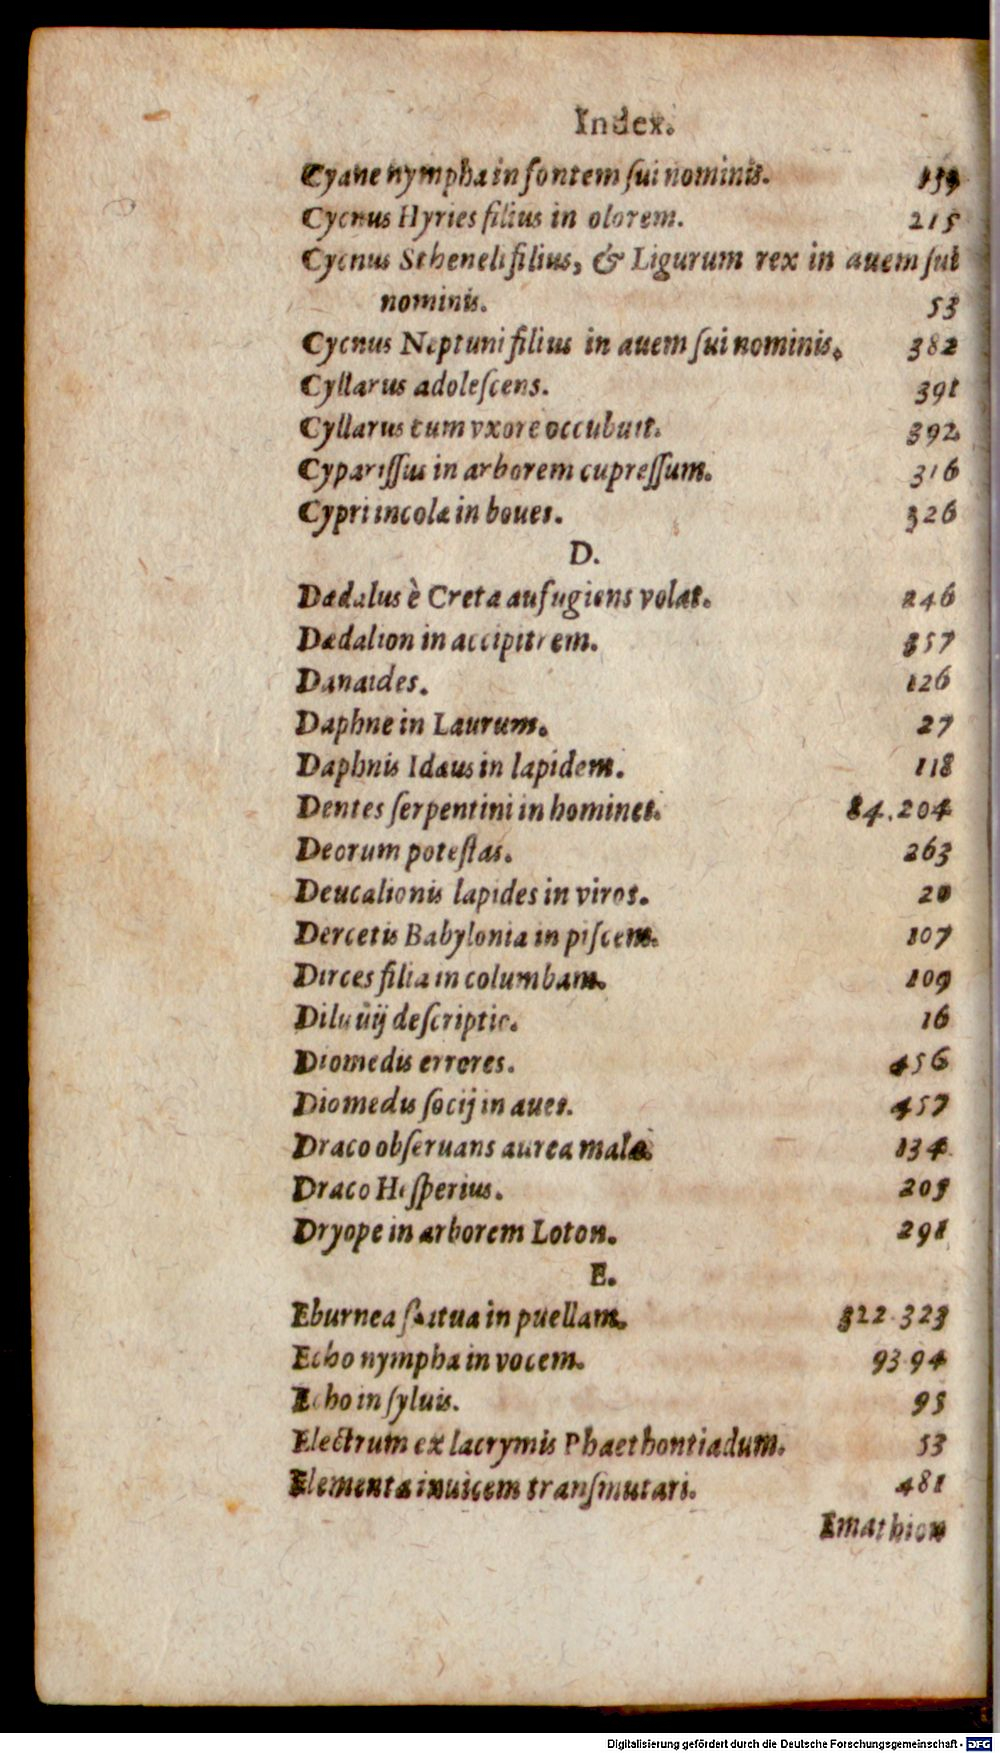 Index.
Cyane nympha in fontem ſui nominis. 139
Cycnus Hyries filius in olorem. 215
Cycnus Stheneli filius, & Ligurum rex in auem ſui
nominis. 53
Cycnus Neptuni filius in auem ſui nominis. 382
Cyllarus adoleſcens. 391
Cyllarus cum vxore occubuit. 392
Cypariſſus in arborem cupreſſum. 316
Cypri incolæ in boues. 326
D.
Dædalus è Creta aufugiens volat. 246
Dædalion in accipitrem. 357
Danaides. 126
Daphne in Laurum. 27
Daphnis Idæus in lapidem. 118
Dentes ſerpentini in homines. 84.204
Deorum poteſtas. 263
Deucalionis lapides in viros. 20
Dercetis Babylonia in piſcem. 107
Dirces filia in columbam. 109
Diluuij deſcriptio. 16
Diomedis errores. 456
Diomedis ſocij in aues. 457
Draco obſeruans aurea mala. 134
Draco Heſperius. 205
Dryope in arborem Loton. 291
E.
Eburnea ſtatua in puellam. 322.323
Echo nympha in vocem. 93.94
Echo in ſyluis. 95
Electrum ex lacrymis Phaethontiadum. 53
Elementa inuicem tranſmutari. 481
Emathion
Digitalisierung gefördert durch die Deutsche Forschungsgemeinschaft - DFG